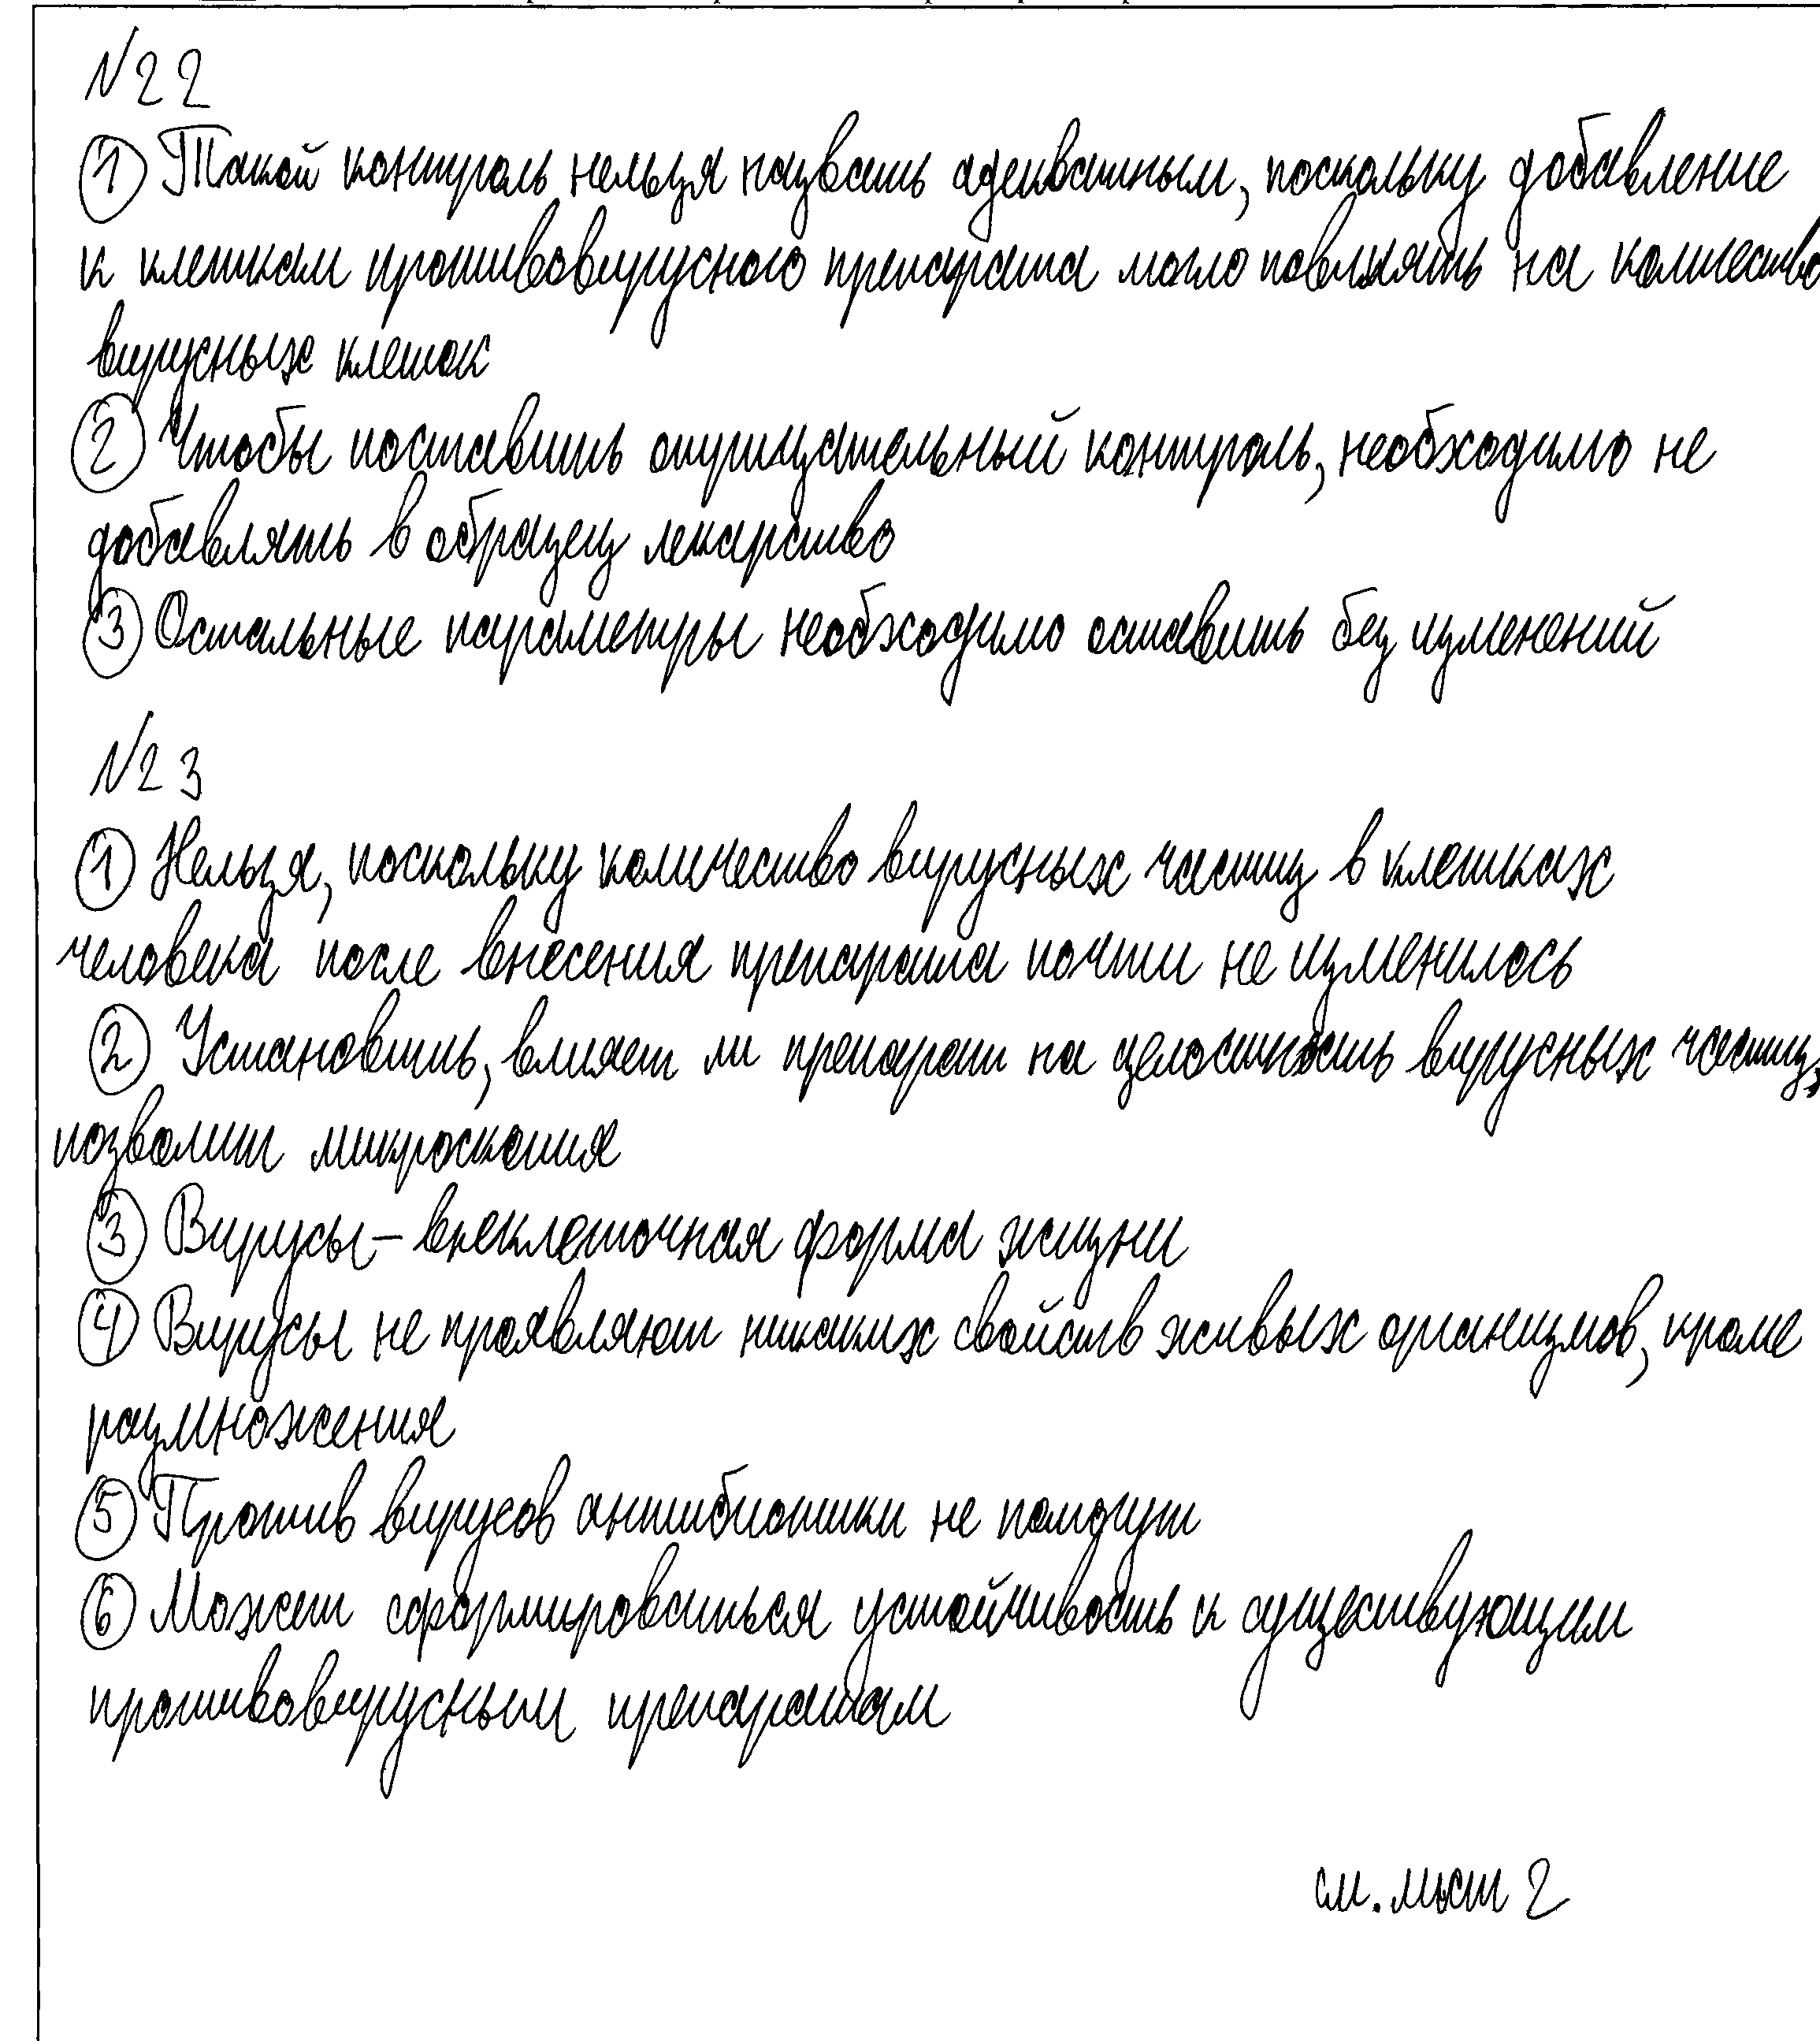 №22
① Такой контроль нельзя назвать адекватным, поскольку добавление
к клеткам противовирусного препарата могло повлиять на количество
вирусных клеток
② Чтобы поставить отрицательный контроль, необходимо не
добавлять в образец лекарство
③ Остальные параметры необходимо оставить без изменений
№23
① Нельзя, поскольку количество вирусных частиц в клетках
человека после внесения препарата почти не изменилось
② Установить, влияет ли препарат на целостность вирусных частиц,
позволит микроскопия
③ Вирусы – внеклеточная форма жизни
④ Вирусы не проявляют никаких свойств живых организмов, кроме
размножения
⑤ Против вирусов антибиотики не помогут
⑥ Может сформироваться устойчивость к существующим
противовирусным препаратам
см. лист 2